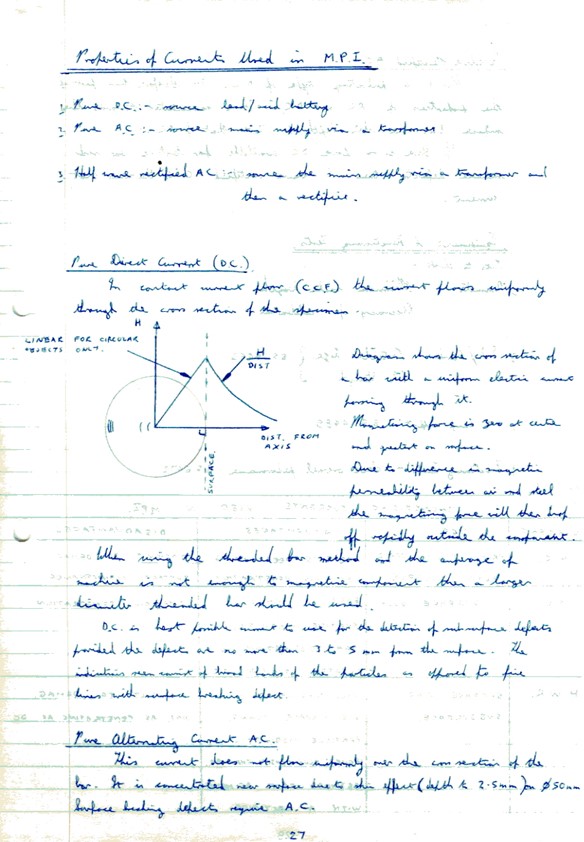 Properties of Currents Used in M.P.I.
1. Pure D.C. :- source lead/acid battery
2. Pure A.C. :- source mains supply via a transformer
3. Half wave rectified A.C. :- source the mains supply via a transformer and
then a rectifier.
Pure Direct Current (D.C.)
In contact current flow (C.C.F.) the current flows uniformly
through the cross section of the specimen.
H
LINEAR FOR CIRCULAR
OBJECTS ONLY.
H
DIST
DIST. FROM
AXIS
SURFACE
Diagram shows the cross section of
a bar with a uniform electric current
passing through it.
Magnetising force is zero at centre
and greatest on surface.
Due to difference in magnetic
permeability between air and steel
the magnetising force will then drop
off rapidly outside the component.
When using the threaded bar method and the amperage of
machine is not enough to magnetise component then a larger
diameter threaded bar should be used.
D.C. is best possible current to use for the detection of subsurface defects
provided the defects are no more than 3 to 5 mm from the surface. The
indications seen consist of broad bands of the particles as opposed to fine
lines with surface breaking defect.
Pure Alternating Current A.C.
This current does not flow uniformly over the cross section of the
bar. It is concentrated near surface due to skin effect (depth to 2.5mm) on Ø50mm
Surface breaking defects require A.C.
27